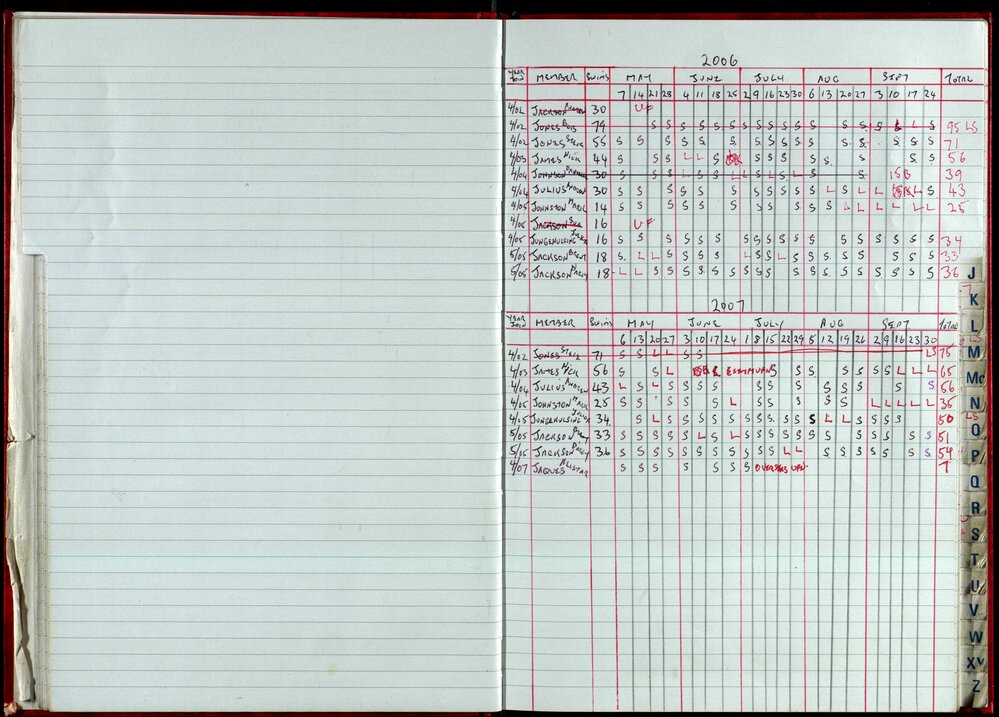 2006
YEAR JOIN MEMBER SWIMS MAY JUNE JULY AUG SEPT TOTAL
7 14 21 28 4 11 18 25 2 9 16 23 30 6 13 20 27 3 10 17 24
4/02 JACKSON 30 UF
4/02 JONES BOB 79 S S S S S S S S S S S S S S S S L L S 95 LS
4/02 JONES STEVE 55 S S S S S S S S S S S S S S S S 71
4/03 JAMES NICK 44 S S S L L S S S S S S S S S 56
4/04 JOHNSON 30 S 15B 39
4/04 JULIUS ANDREW 30 S S S S S S S S S S S S L S L L L S 43
4/05 JOHNSTON MARK 14 S S 25
4/05 JACKSON 16 UF
4/05 JUNGENUSSING 16 S S S S S S S S S S S S S S S S S S 34
5/05 JACKSON BRENT 18 S L L S S S S L S S L S S S S S S S S 33
5/05 JACKSON PADDY 18 L L S S S S S S S S S S S S S S S S S S 36
2007
YEAR JOIN MEMBER SWIMS MAY JUNE JULY AUG SEPT TOTAL
6 13 20 27 3 10 17 24 1 8 15 22 29 5 12 19 26 2 9 16 23 30
4/02 JONES STEVE 71 S S L L S S LS 75
4/03 JAMES NICK 56 S S L S S S S S S L L L 65
4/04 JULIUS ANDREW 43 L S L S S S S S S S S S S S 56
4/05 JOHNSTON MARK 25 S S S S S L S S S S S L L L L L 35
4/05 JUNGENUSSING 34 S L S S S S S S S S S S S L L S S S 50 LS
5/05 JACKSON BRENT 33 S S S S S L S L S S S S S S S S S S S S 51
5/05 JACKSON PADDY 36 S S S S S S S S S S S L L S S S S S S S S 54
4/07 JAQUES ALISTAR S S S S S S S OVERSEAS 7
J
K
L
M
Mc
N
O
P
Q
R
S
T
U
V
W
XY
Z